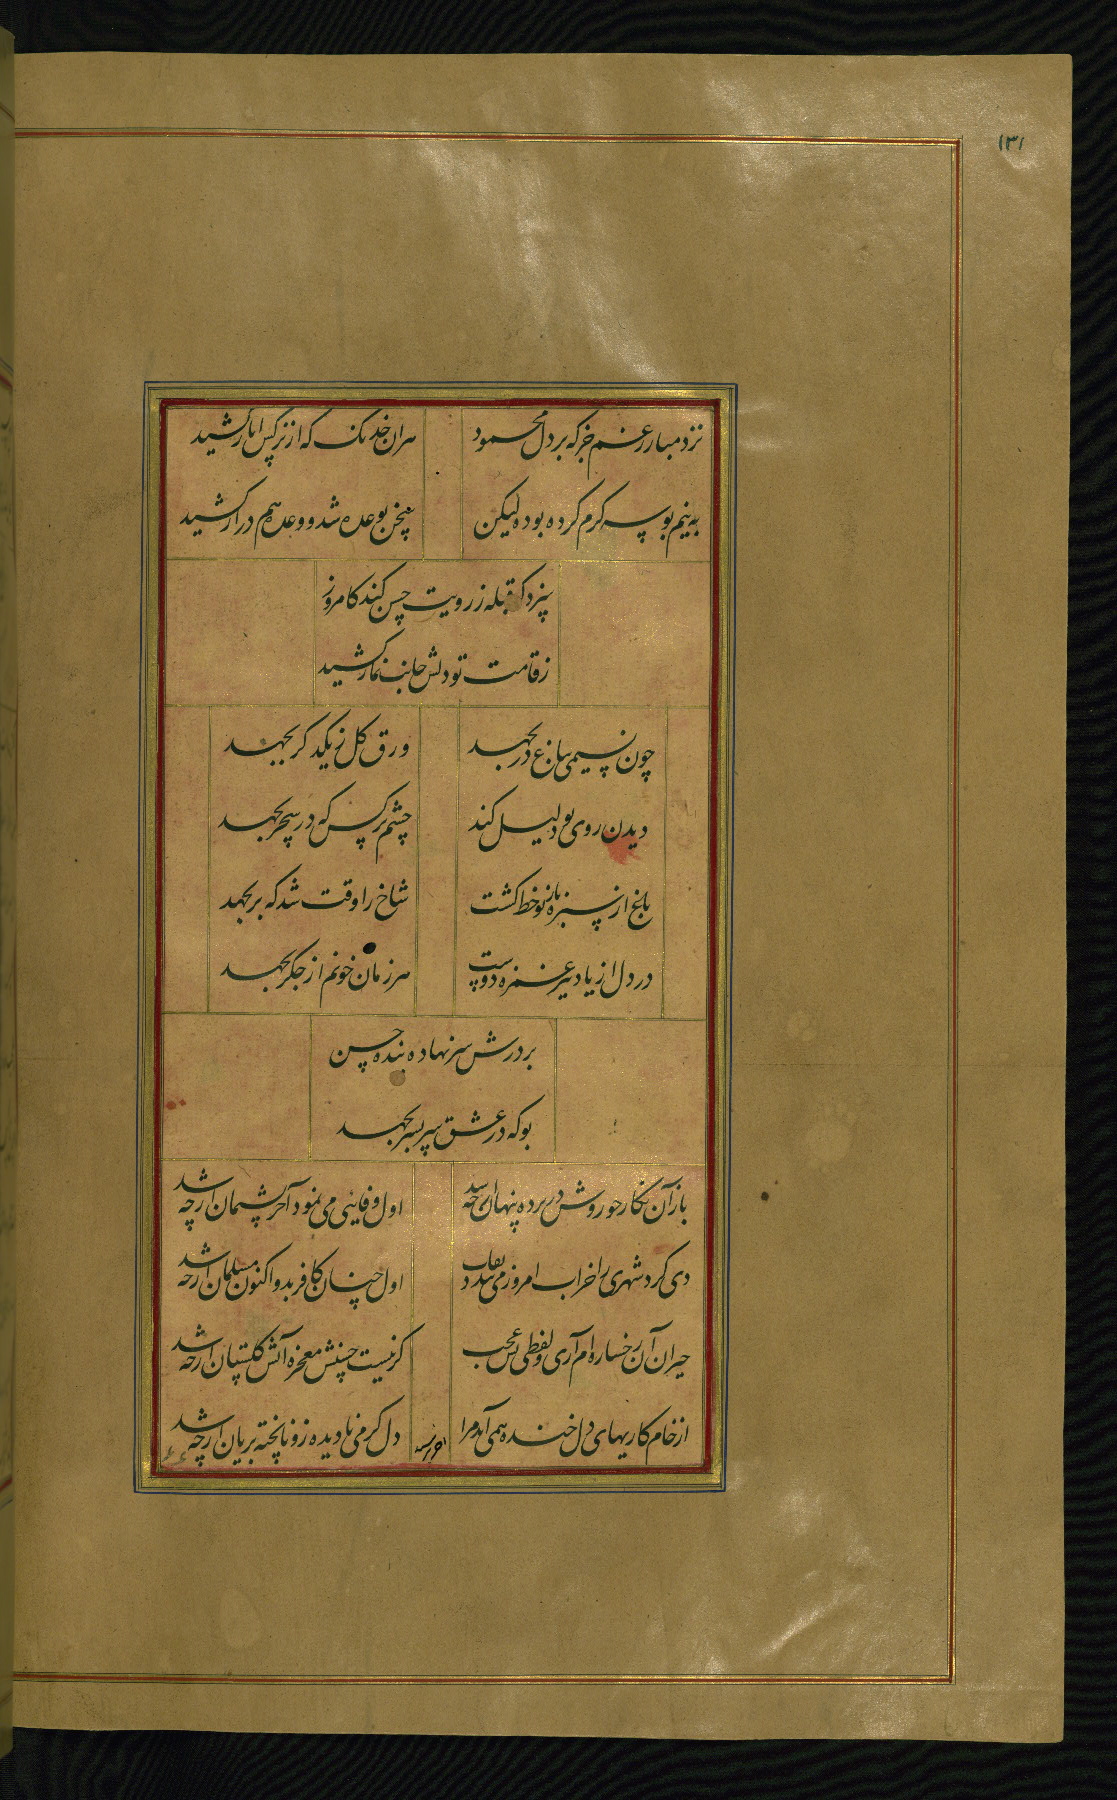 ١٣١
نزد مبارز غم جز که بر دل محمود
هر آن خدنک که از ترکس ایاز کشید
به نیم بوسه کرم کرده بوده لیکن
سخن بوعده شد و وعده هم دراز کشید
سزد که قبله ز رویت حسن کند کامروز
ز قامت تو دلش جانب نماز کشید
چون نسیمی بباغ در بجهد
ورق کل ز یکدکر بجهد
دیدن روی تو دلیل کند
چشم نرکس که در سحر بجهد
باغ از سبزه باز نو خط کشت
شاخ را وقت شد که بر بجهد
در دل از یاد تیر غمزه دوست
هر زمان خونم از جکر بجهد
بر درش سر نهاده بنده حسن
بو که در عشق سر بسر بجهد
باز آن نکار حوروش در پرده پنهان از چه شد
اول وفایی می نمود آخر پشیمان از چه شد
دی کرد شهری را خراب امروز می بندد نقاب
اول چنان کافر بد و اکنون مسلمان از چه شد
حیران آن رخساره ام آری و لفظی بس عجب
کر نیست حسنش معجزه آتش کلستان از چه شد
از خام کاریهای دل خنده همی آمد مرا
دل کرمی نادیده زو ناپخته بریان از چه شد